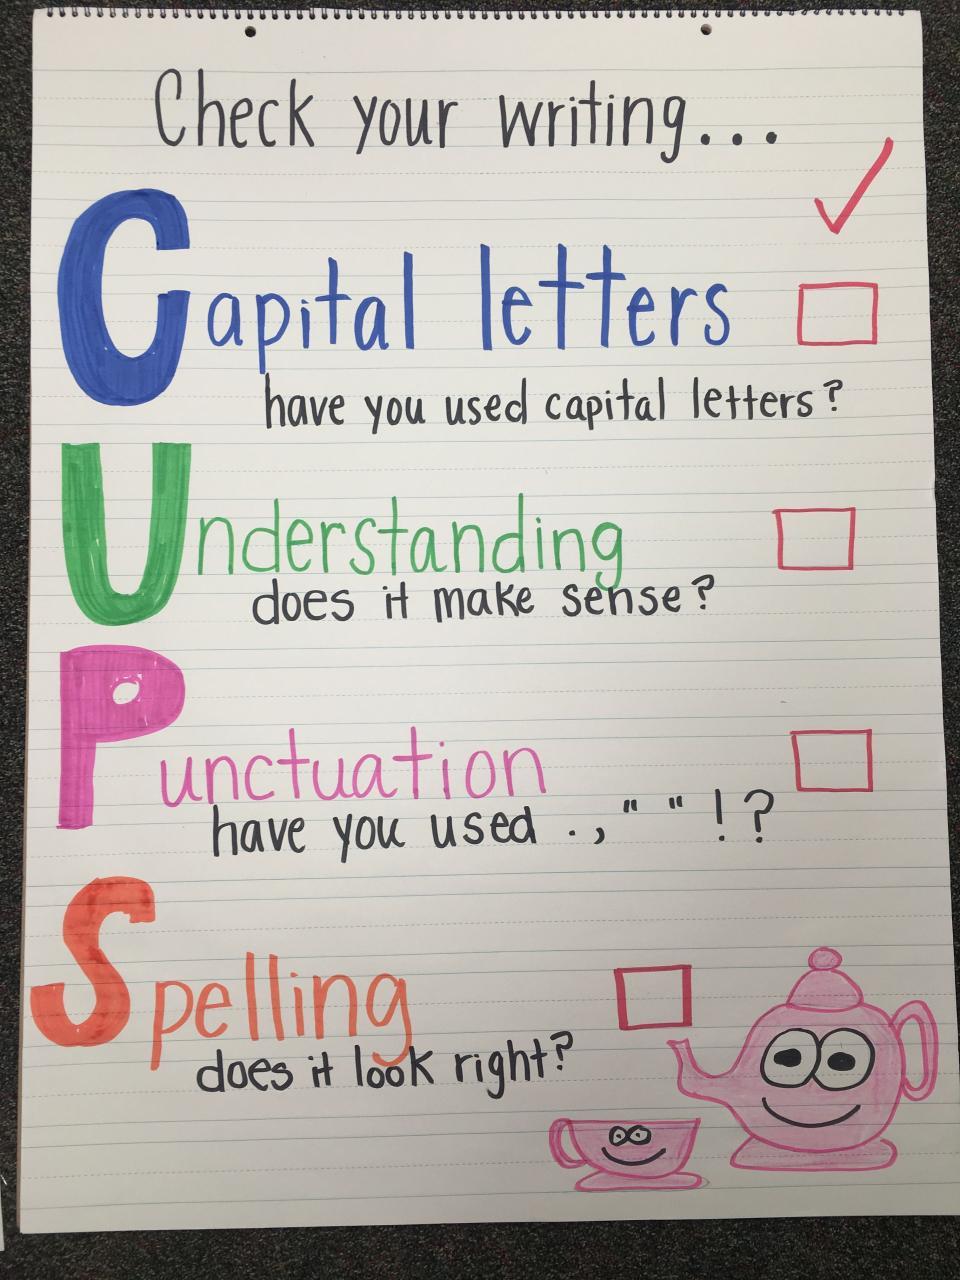 Check your writing...
Capital letters
have you used capital letters?
Understanding
does it make sense?
Punctuation
have you used . , " " ! ?
Spelling
does it look right?